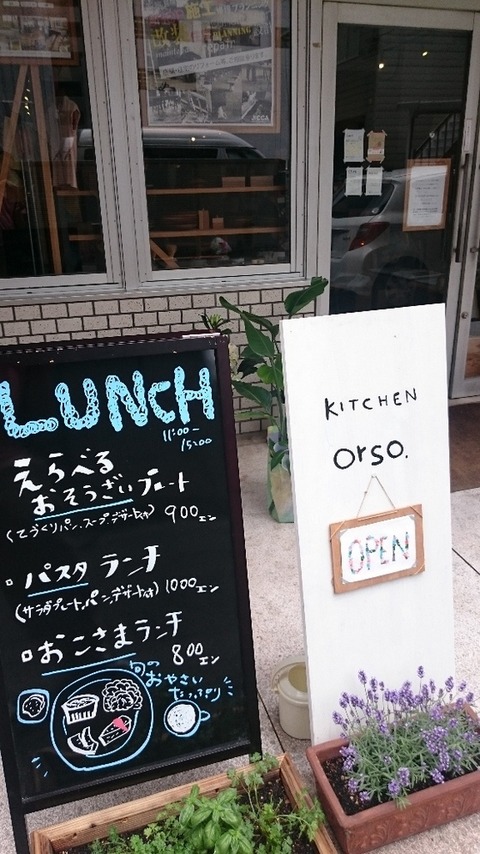 LUNCH
11:00-
15:00
えらべる
おそうざいプレート
(てづくりパン、スープ、デザート付) 900エン
パスタ ランチ
(サラダプレート、パン、デザート付) 1000エン
おこさまランチ
800エン
旬の
おやさい
たっぷり
KITCHEN
orso.
OPEN